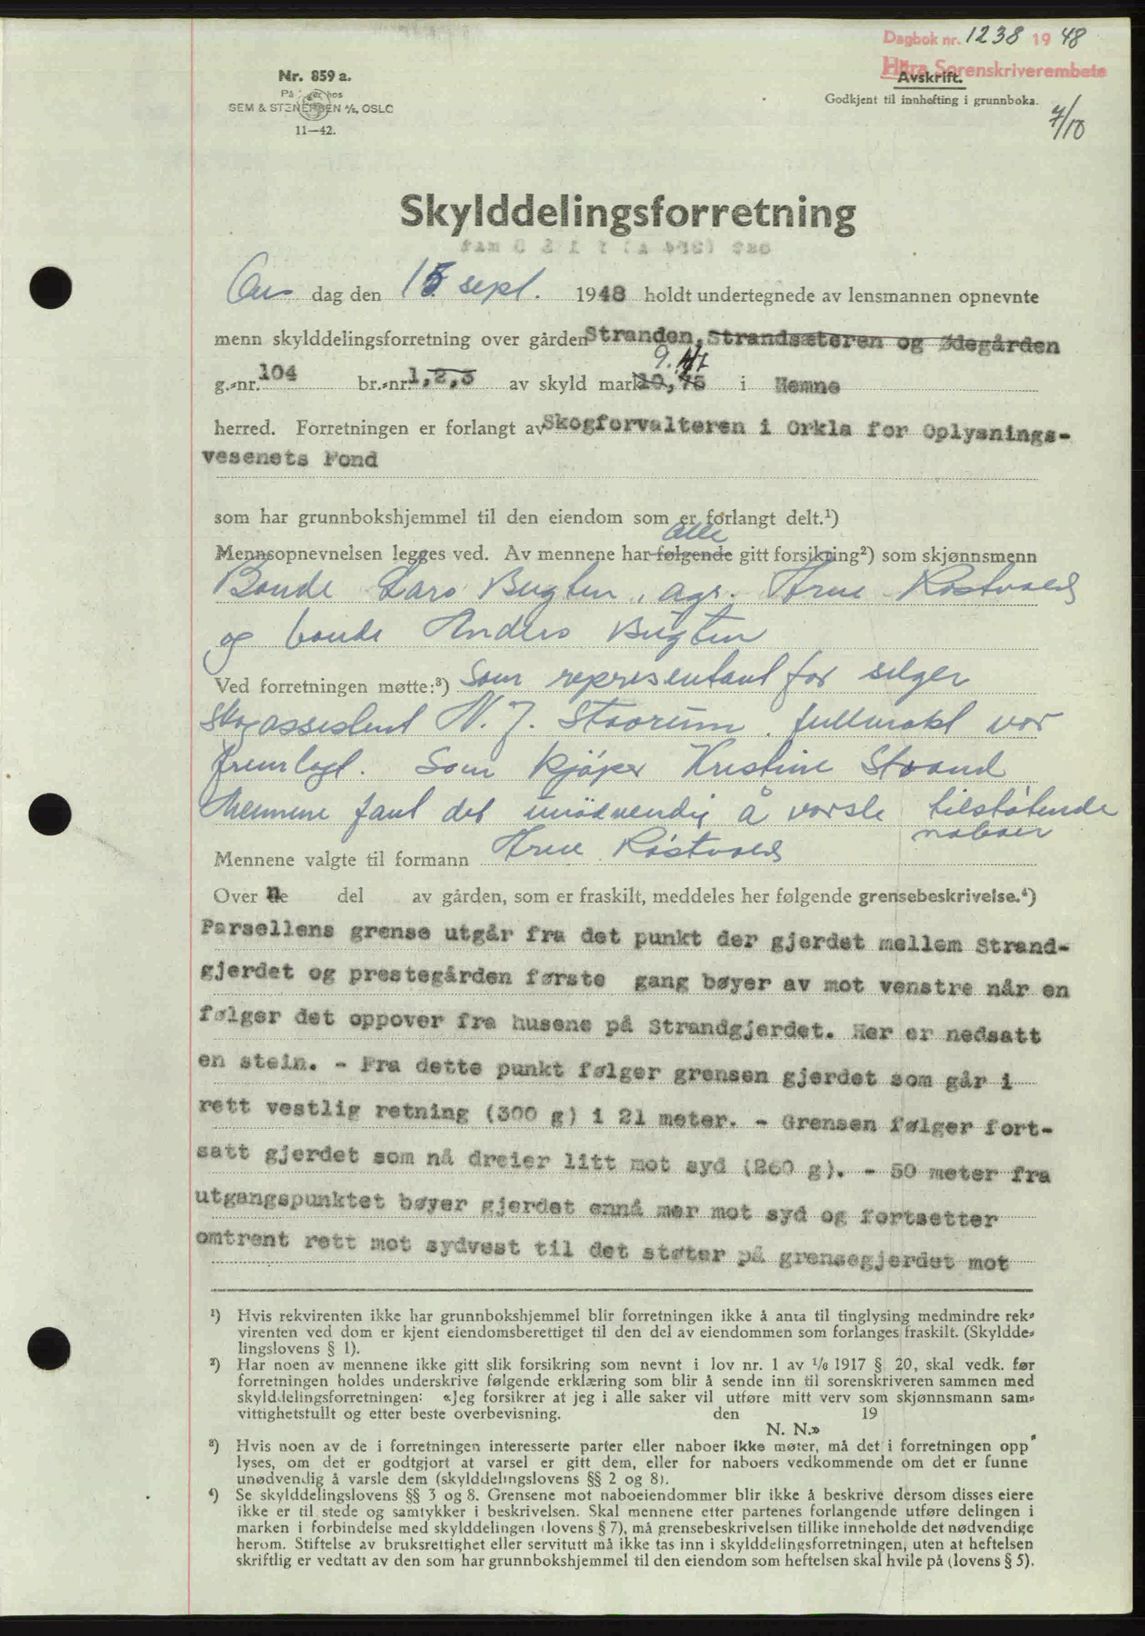 Dagbok nr. 1238 1948
Sorenskriverembete
Nr. 859 a.
SEM & STENERSEN A/S, OSLO
11—42.
Avskrift.
Godkjent til innhefting i grunnboka.
7/10
Skylddelingsforretning
dag den 15 sept. 1948 holdt undertegnede av lensmannen opnevnte
menn skylddelingsforretning over gården Stranden, Strandsæteren og Ødegården
9.47
g.-nr. 104 br.-nr. 1,2,3 av skyld mark 10,75 i Hemne
herred. Forretningen er forlangt av Skogforvalteren i Orkla for Oplysnings-
vesenets Fond
som har grunnbokshjemmel til den eiendom som er forlangt delt.¹)
alle
Mennsopnevnelsen legges ved. Av mennene har følgende gitt forsikring²) som skjønnsmenn
Bonde Lars Bugten, agr. Arne Røstvold
og bonde Anders Bugten
Ved forretningen møtte:³) Som representant for selger
skogassistent N. J. Staorum. fullmakt var
fremlagt. Som kjøper Kristine Strand
Mennene fant det unødvendig å varsle tilstøtende
naboer
Mennene valgte til formann Arne Røstvold
Over De del av gården, som er fraskilt, meddeles her følgende grensebeskrivelse.⁴)
Parsellens grense utgår fra det punkt der gjerdet mellem Strand-
gjerdet og prestegården første gang bøyer av mot venstre når en
følger det oppover fra husene på Strandgjerdet. Her er nedsatt
en stein. - Fra dette punkt følger grensen gjerdet som går i
rett vestlig retning (300 g) i 21 meter. - Grensen følger fort-
satt gjerdet som nå dreier litt mot syd (260 g). - 50 meter fra
utgangspunktet bøyer gjerdet ennå mer mot syd og fortsetter
omtrent rett mot sydvest til det støter på grensegjerdet mot
¹) Hvis rekvirenten ikke har grunnbokshjemmel blir forretningen ikke å anta til tinglysing medmindre rek-
virenten ved dom er kjent eiendomsberettiget til den del av eiendommen som forlanges fraskilt. (Skyldde-
lingslovens § 1).
²) Har noen av mennene ikke gitt slik forsikring som nevnt i lov nr. 1 av 1/6 1917 § 20, skal vedk. før
forretningen holdes underskrive følgende erklæring som blir å sende inn til sorenskriveren sammen med
skylddelingsforretningen: «Jeg forsikrer at jeg i alle saker vil utføre mitt verv som skjønnsmann sam-
vittighetsfullt og etter beste overbevisning. den 19
N. N.»
³) Hvis noen av de i forretningen interesserte parter eller naboer ikke møter, må det i forretningen opp-
lyses, om det er godtgjort at varsel er gitt dem, eller for naboers vedkommende om det er funne
unødvendig å varsle dem (skylddelingslovens §§ 2 og 8).
⁴) Se skylddelingslovens §§ 3 og 8. Grensene mot naboeiendommer blir ikke å beskrive dersom disses eiere
ikke er til stede og samtykker i beskrivelsen. Skal mennene etter partenes forlangende utføre delingen i
marken i forbindelse med skylddelingen (lovens § 7), må grensebeskrivelsen tillike inneholde det nødvendige
herom. Stiftelse av bruksrettighet eller servitutt må ikke tas inn i skylddelingsforretningen, uten at heftelsen
skriftlig er vedtatt av den som har grunnbokshjemmel til den eiendom som heftelsen skal hvile på (lovens § 5).